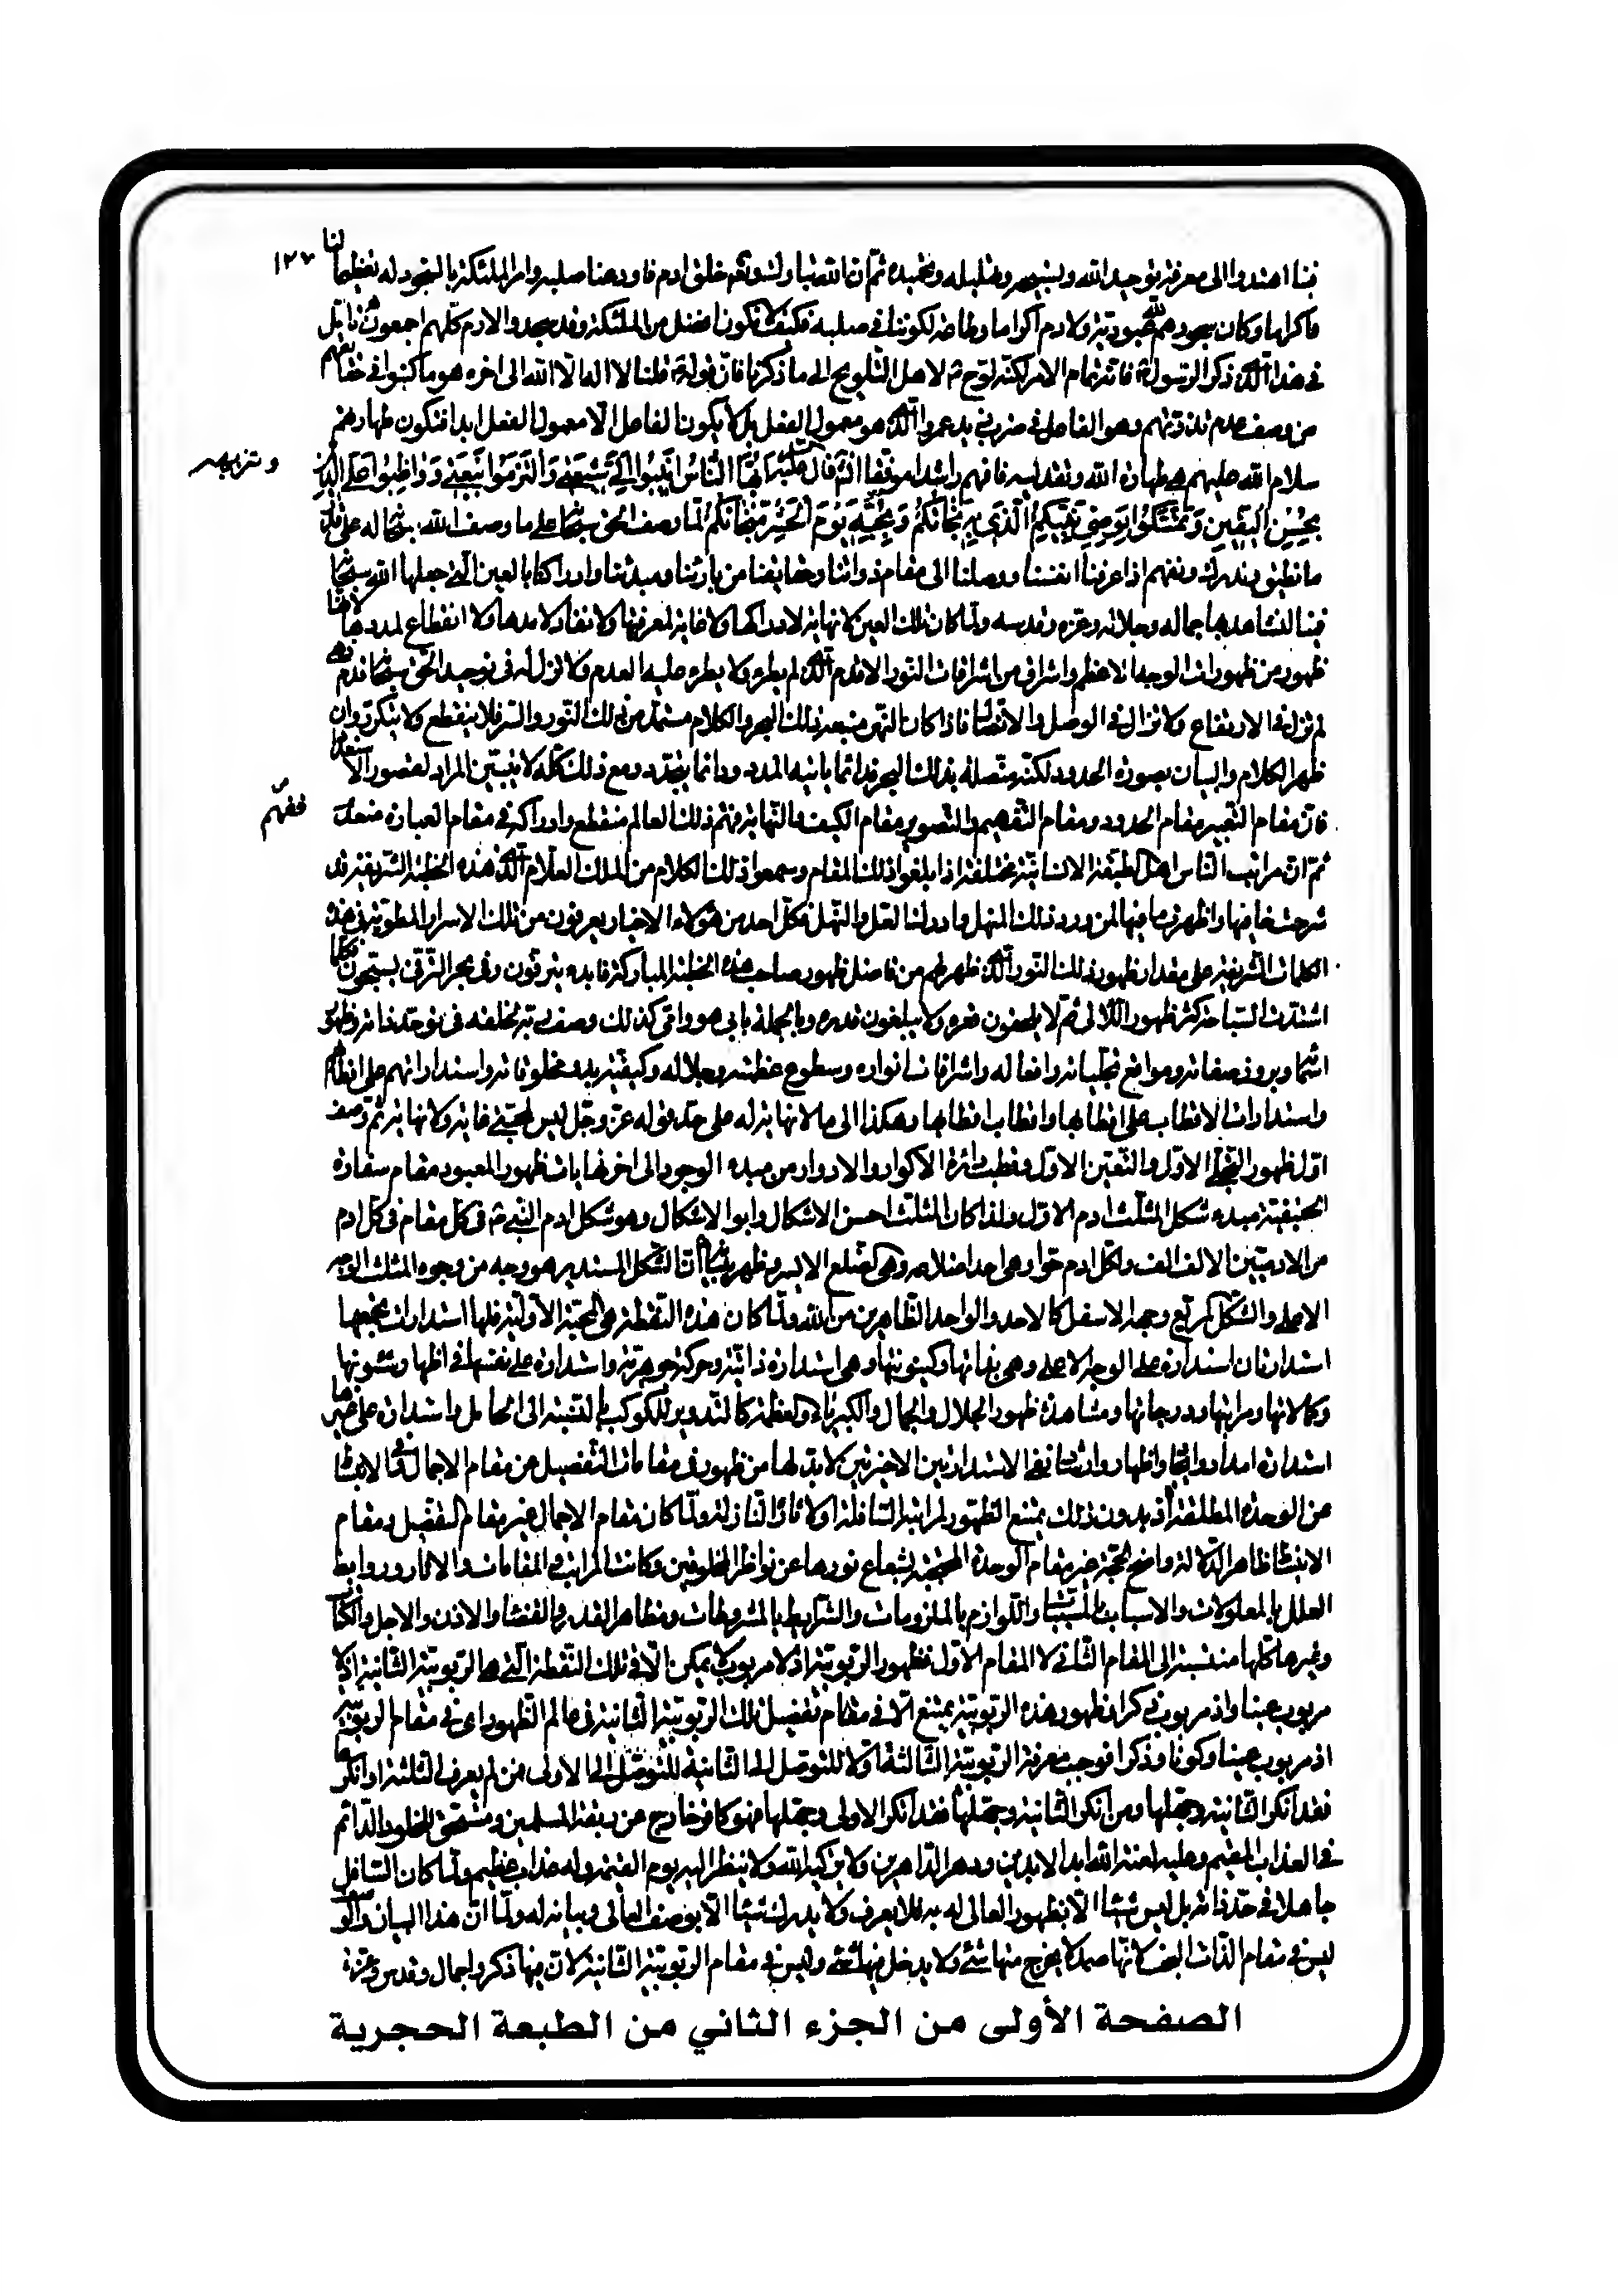 ١٢٧
فبنا اهتدوا الى معرفة توحيد الله وتسبيحه وتهليله وتمجيده ثم ان الله تبارك وتعالى خلق ادم فاودعنا صلبه وامر الملئكة بالسجود له تعظيما لنا
واكراما وكان سجودهم لله عبودية ولادم اكراما وطاعة لكوننا في صلبه فكيف لا نكون افضل من الملئكة وقد سجدوا لادم كلهم اجمعون
في هذا الذي ذكر الرسول فانه تمام الامر لكنه لاهل التلويح الى ما ذكرنا فان قوله قلنا لا اله الا الله الى اخره هو ما كتبوا في
من وصف عدم تذوتهم وهو الفاعل في ضرب زيد عمروا الذي هو معمول الفعل بل لا يكون الفاعل الا معمول الفعل ابدا فتكون طهارتهم
سلام الله عليهم هي طهارة الله وتقديسه وتنزيهه فافهم راشدا موفقا ثم قال ايها الناس انيبوا الى شيعتي والتزموا بيعتي وواظبوا على الدين
بحسن اليقين وتمسكوا بوصي نبيكم الذي به نجاتكم وبحبه يوم الحشر منجاتكم لما وصف الحق سبحانه على ما وصف الله سبحانه له على قدر
ما نطيق وندرك ونفهم اذا عرفنا انفسنا ووصلنا الى مقام ذواتنا وحقايقنا من بارئنا ومبدئنا وادراكنا بالعين التي جعلها الله سبحانه
فينا لنشاهد بها جماله وجلاله وعزه وقدسه ولما كان تلك العين لا نهاية لادراكها ولا غاية لمعرفتها ولا نفاد لامدها ولا انقطاع لمددها لانها
ظهور من ظهورات الوجه الاعظم واشراق من اشراقات النور الاقدم الذي لم يطرء ولا يطرء عليه العدم ولا تزل له في توحيد الحق سبحانه قدم فهي
لم تزل في الارتفاع ولا تزال في الوصل والاتصال فاذا كان النهر منبعه ذلك البحر والكلام مستمد من ذلك النور والسر فلا ينقطع ولا يتكرر وان
ظهر الكلام والبيان بصورة الحدود لكنه متصلة بذلك البحر فدائما يأتيه المدد ودائما يتجدد ومع ذلك كله لا يتبين المراد لقصور الاستعداد
فان مقام التعبير مقام الحدود ومقام التفهيم والتصوير مقام الكيف والنهاية ففهم ذلك العالم منقطع وادراكه في مقام العبارة متعذر
ثم ان مراتب الناس اهل طبقة الانسانية مختلفة اذا بلغوا ذلك المقام وسمعوا ذلك الكلام من الملك العلام الذي هذه الخطبة الشريفة قد
شرحت خافيها واظهرت ما فيها لمن ورد ذلك المنهل وادرك العل والنهل فكل احد من هؤلاء الاخيار يعرفون من تلك الاسرار المطوية في هذه
الكلمات الشريفة على مقدار ظهور ذلك النور الذي ظهر لهم من فاضل ظهور صاحب هذه الخطبة المباركة فابدا يترقون وفي بحر الترقي يسبحون فكلما
اشتدت السباحة كثر ظهور اللئالي ثم لا يصفون قعره ولا يبلغون قدره وبالجملة باي هو وامي كذلك وصف ربه لخلقه في توحد ذاته وظهور
اسمائه وبروز صفاته ومواقع تجلياته وافعاله واشراقات انواره وسطوع عظمته وجلاله وكيفية بدء مخلوقاته واستداراتهم على اقطابهم
واستدارات الاقطاب على اقطابها واقطاب اقطابها وهكذا الى ما لا نهاية له على حد قوله عز وجل ليس لمحبتي غاية ولا نهاية ثم وصف
اول ظهور التجلي الاول والتعين الاول وقطب دائرة الاكوار والادوار من مبدء الوجود الى اخر نهايات ظهور المعبود مقام سفارة
الحقيقية مبدء شكل المثلث ادم الاول ولذا كان المثلث احسن الاشكال وابو الاشكال وهو شكل ادم النبي في كل مقام في كل ادم
من الادميين الالف الف ولكل ادم حوا وهي احد اضلاعه وهي الضلع الايسر وظهر ان الشكل المستدير هو وجه من وجوه المثلث الوجه
الاعلى والشكل المربع وجهه الاسفل كالاحد والواحد الظاهرين من الله ولما كان هذه النقطة هي المحبة الاولية فلها استدارات يجمعها
استدارتان استدارة على الوجه الاعلى وهي بذاتها وكينونتها وهي استدارة ذاتية وحركة جوهرية واستدارة على نفسها في اظهار شئونها
وكمالاتها ومراتبها ودرجاتها ومشاهدة ظهور الجلال والجمال والكبرياء والعظمة كالتدوير للكوكب بالنسبة الى الحامل واستدارة على غيرها
استدارة امداد وايجاد واظهار وارشاد ففي الاستدارتين الاخيرتين لا بد لها من ظهور في مقامات التفصيل من مقام الاجمال
عن الوحدة المطلقة اذ بدون ذلك يمتنع الظهور لمراتبه السافلة او لاثاره النازلة ولما كان مقام الاجمال غير مقام التفصيل ومقام
الانبساط ظاهر الدلالة واضح الحجة غير مقام الوحدة المحتجبة بشعاع نورها عن نواظر المخلوقين وكانت المراتب في المقامات والاثار وروابط
العلل بالمعلولات والاسباب بالمسببات واللوازم بالملزومات والشرايط بالمشروطات ومظاهر القدر والقضاء والاذن والاجل والكتاب
وغيرها كلها منتسبة الى المقام الثاني لا المقام الاول فظهور الربوبية اذ لا مربوب لا يمكن الا في تلك النقطة التي هي الربوبية الثانية اذ لا
مربوب عينا واذ مربوب ذكرا فظهور هذه الربوبية يمتنع الا في مقام تفصيل تلك الربوبية الثانية في عالم الظهور اي في مقام الربوبية
اذ مربوب عينا وكونا وذكرا فوجب معرفة الربوبية الثالثة اولا للتوصل الى الثانية للتوصل الى الاولى فمن لم يعرف الثالثة او انكرها
فقد انكر الثانية وجهلها ومن انكر الثانية وجهلها فقد انكر الاولى وجهلها فهو كافر خارج عن ربقة المسلمين ومستحق الخلود الدائم
في العذاب المقيم وعليه لعنة الله ابد الابدين ودهر الداهرين ولا يزكيه الله ولا ينظر اليه يوم القيمة وله عذاب عظيم ولما كان السافل
جاهلا في حد ذاته بل ليس شيئا الا بظهور العالي له به فلا يعرف ولا يدرك شيئا الا بوصف العالي وبيانه له ولما ان هذا البيان
ليس في مقام الذات البحت لانها صمد لا يخرج منها شيء ولا يدخل فيها شيء وليس في مقام الربوبية الثانية لان فيها ذكر واجمال وقدس وعزة
الصفحة الأولى من الجزء الثاني من الطبعة الحجرية